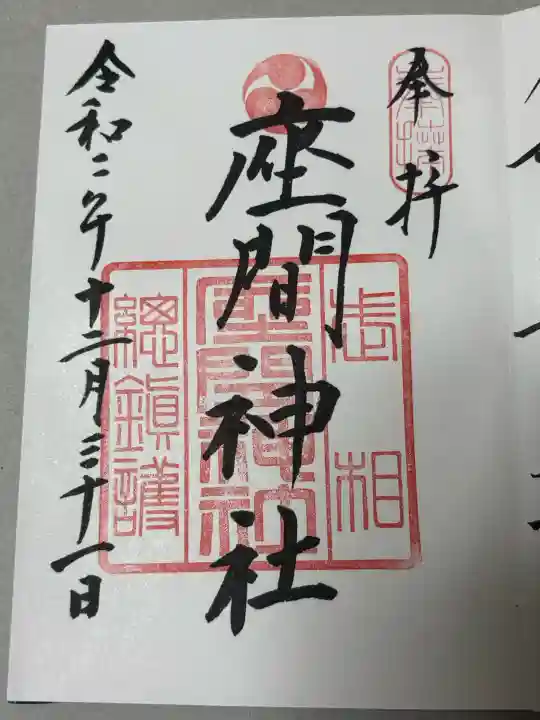 奉拝
座間神社
令和二年十二月三十一日
奉拝
武相
座間神社
總鎮護